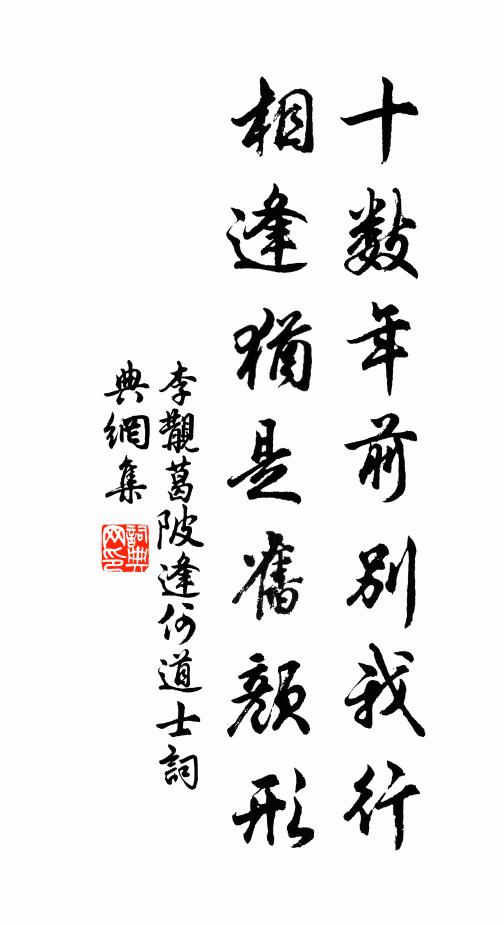 十數年前別我行
相逢猶是舊顏形
李觀葛陂逢何道士詞
典網集
詞典
網印